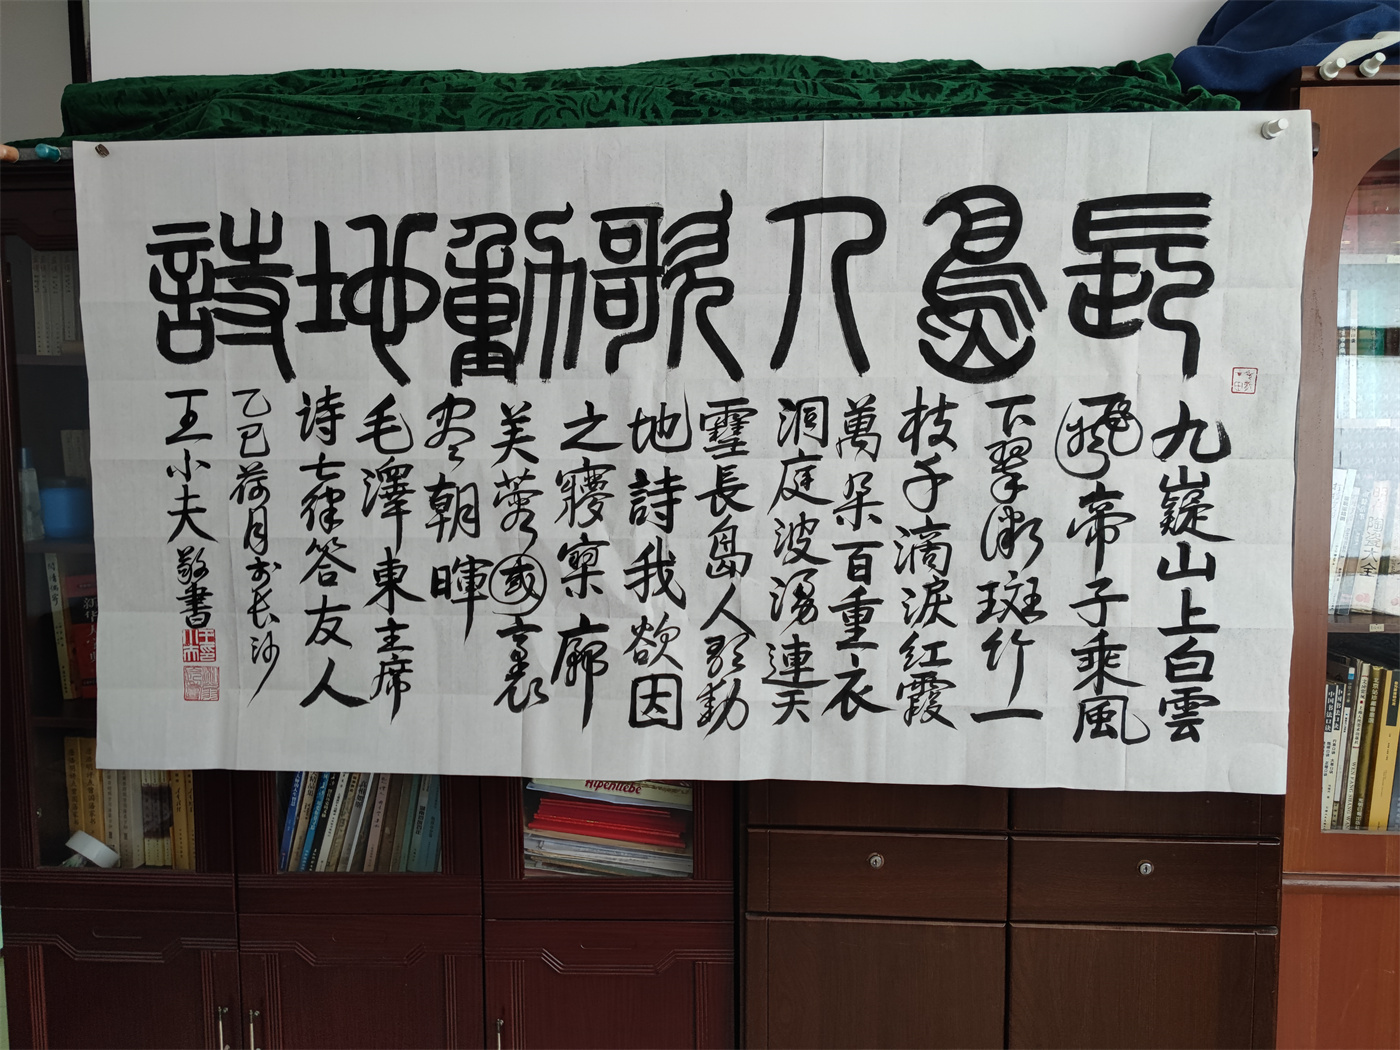 長島人歌動地詩
九嶷山上白雲
飛帝子乘風
下翠微斑竹一
枝千滴淚紅霞
萬朵百重衣
洞庭波湧連天
雪長島人歌動
地詩我欲因
之㝱寥廓
芙蓉國裏
尽朝暉
毛澤東主席
诗七律答友人
乙巳荷月於长沙
王小夫敬書
Alpenliebe